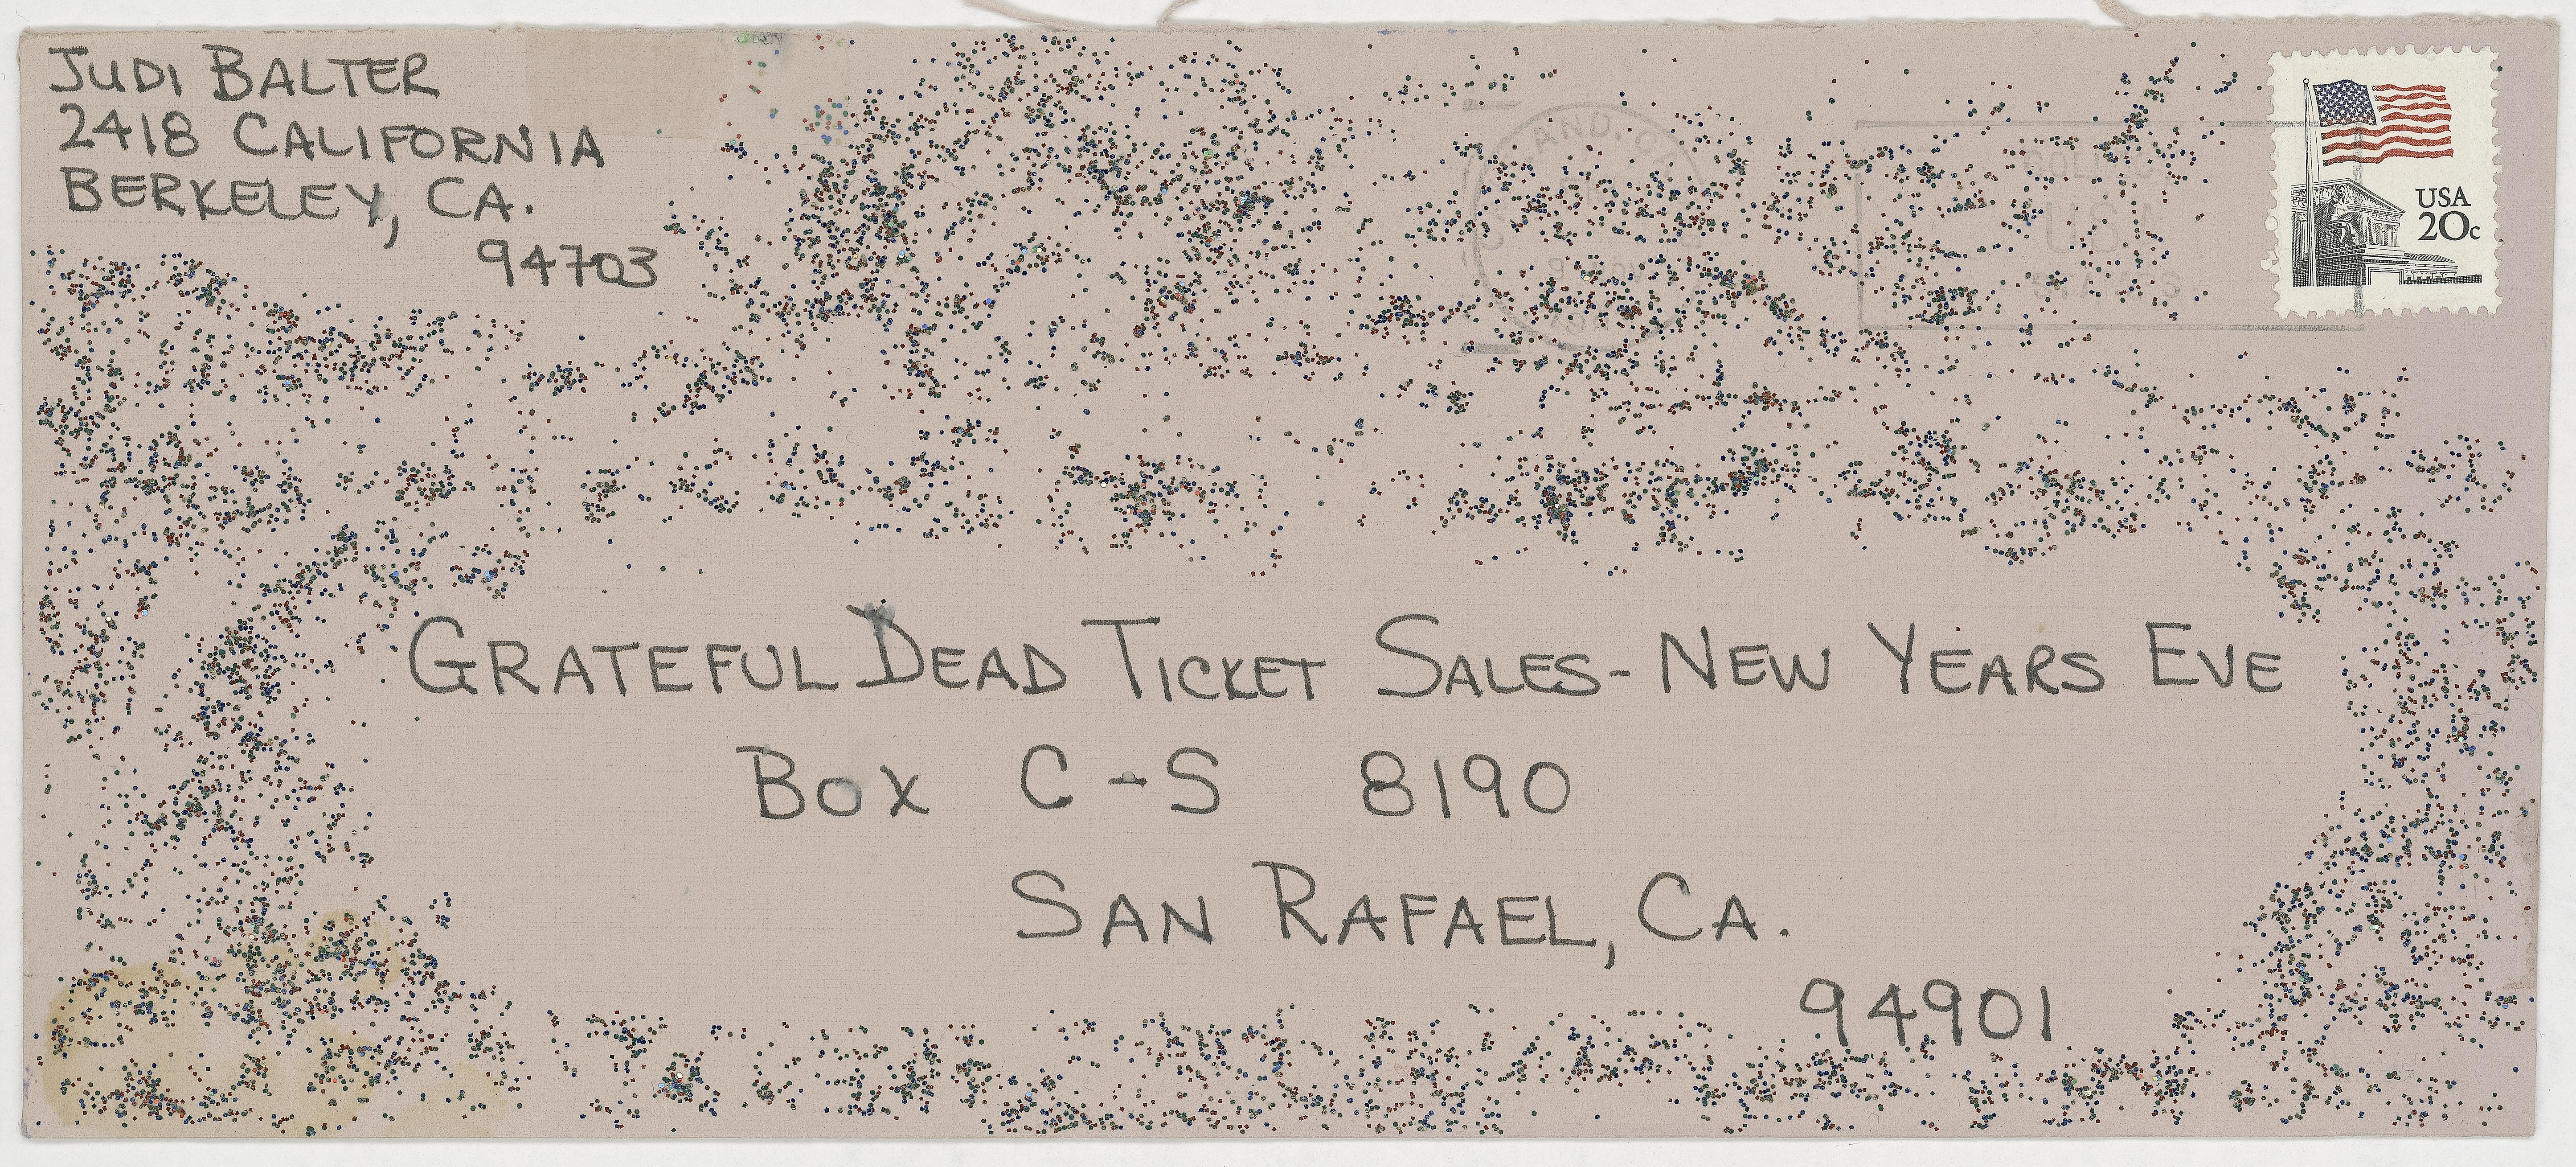 JUDI BALTER
2418 CALIFORNIA
BERKELEY, CA.
94703
USA
20c
GRATEFUL DEAD TICKET SALES - NEW YEARS EVE
BOX C-S 8190
SAN RAFAEL, CA.
94901